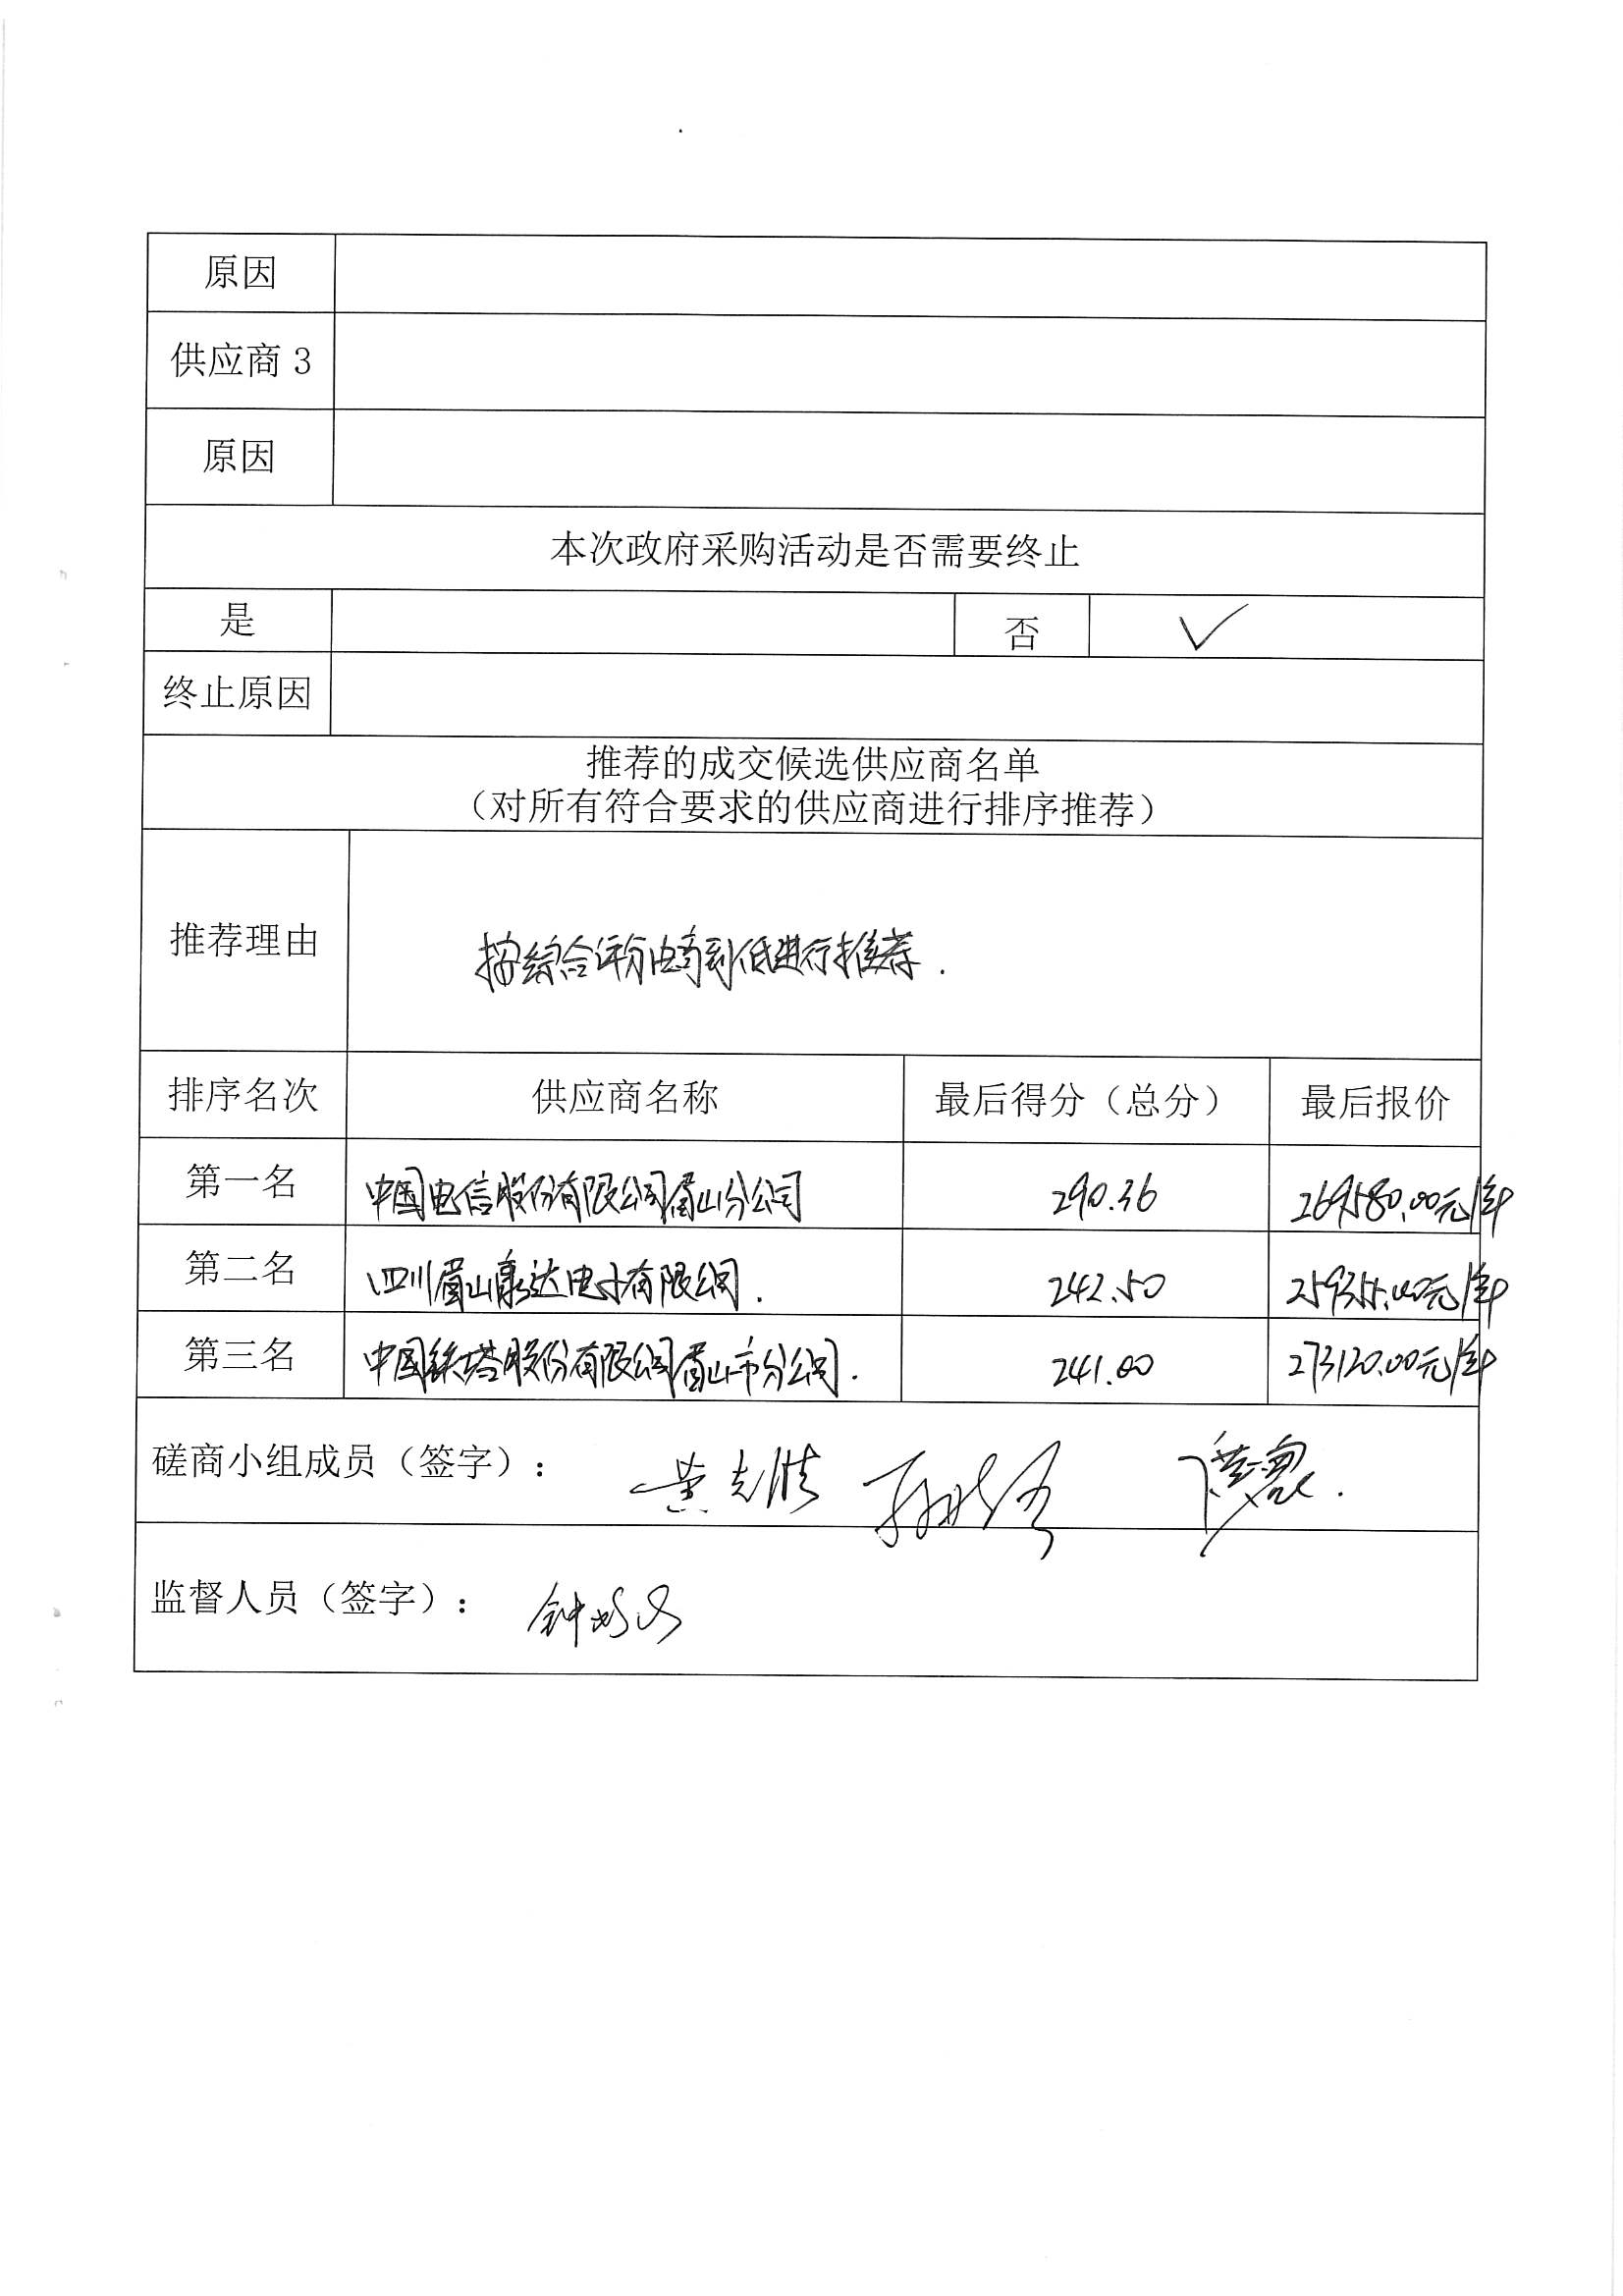 原因
供应商 3
原因
本次政府采购活动是否需要终止
是 否 ✓
终止原因
推荐的成交候选供应商名单
（对所有符合要求的供应商进行排序推荐）
推荐理由 按综合评分由高到低进行推荐.
排序名次 供应商名称 最后得分（总分） 最后报价
第一名 中国电信股份有限公司眉山分公司 290.36 269580.00元/年
第二名 四川眉山康达电子有限公司. 242.50 259355.00元/年
第三名 中国铁塔股份有限公司眉山市分公司. 241.00 273120.00元/年
磋商小组成员（签字）：
监督人员（签字）：